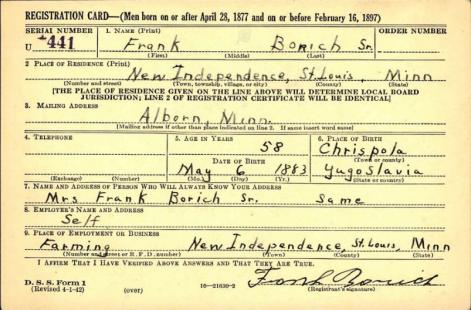 REGISTRATION CARD—(Men born on or after April 28, 1877 and on or before February 16, 1897)
SERIAL NUMBER
1. NAME (Print)
ORDER NUMBER
U 441
Frank Borich Sr.
(First) (Middle) (Last)
2. PLACE OF RESIDENCE (Print)
New Independence, St. Louis, Minn
(Number and street) (Town, township, village, or city) (County) (State)
[THE PLACE OF RESIDENCE GIVEN ON THE LINE ABOVE WILL DETERMINE LOCAL BOARD
JURISDICTION; LINE 2 OF REGISTRATION CERTIFICATE WILL BE IDENTICAL]
3. MAILING ADDRESS
Alborn, Minn.
[Mailing address if other than place indicated on line 2. If same insert word same]
4. TELEPHONE
5. AGE IN YEARS
6. PLACE OF BIRTH
58
Chrispola
DATE OF BIRTH
(Town or county)
May 6 1883
Yugoslavia
(Exchange) (Number) (Mo.) (Day) (Yr.) (State or country)
7. NAME AND ADDRESS OF PERSON WHO WILL ALWAYS KNOW YOUR ADDRESS
Mrs Frank Borich Sr. Same
8. EMPLOYER'S NAME AND ADDRESS
Self
9. PLACE OF EMPLOYMENT OR BUSINESS
Farming New Independence, St. Louis, Minn
(Number and street or R. F. D. number) (Town) (County) (State)
I AFFIRM THAT I HAVE VERIFIED ABOVE ANSWERS AND THAT THEY ARE TRUE.
D. S. S. Form 1
(Revised 4-1-42) (over) 16—21630-2
Frank Borich
(Registrant's signature)